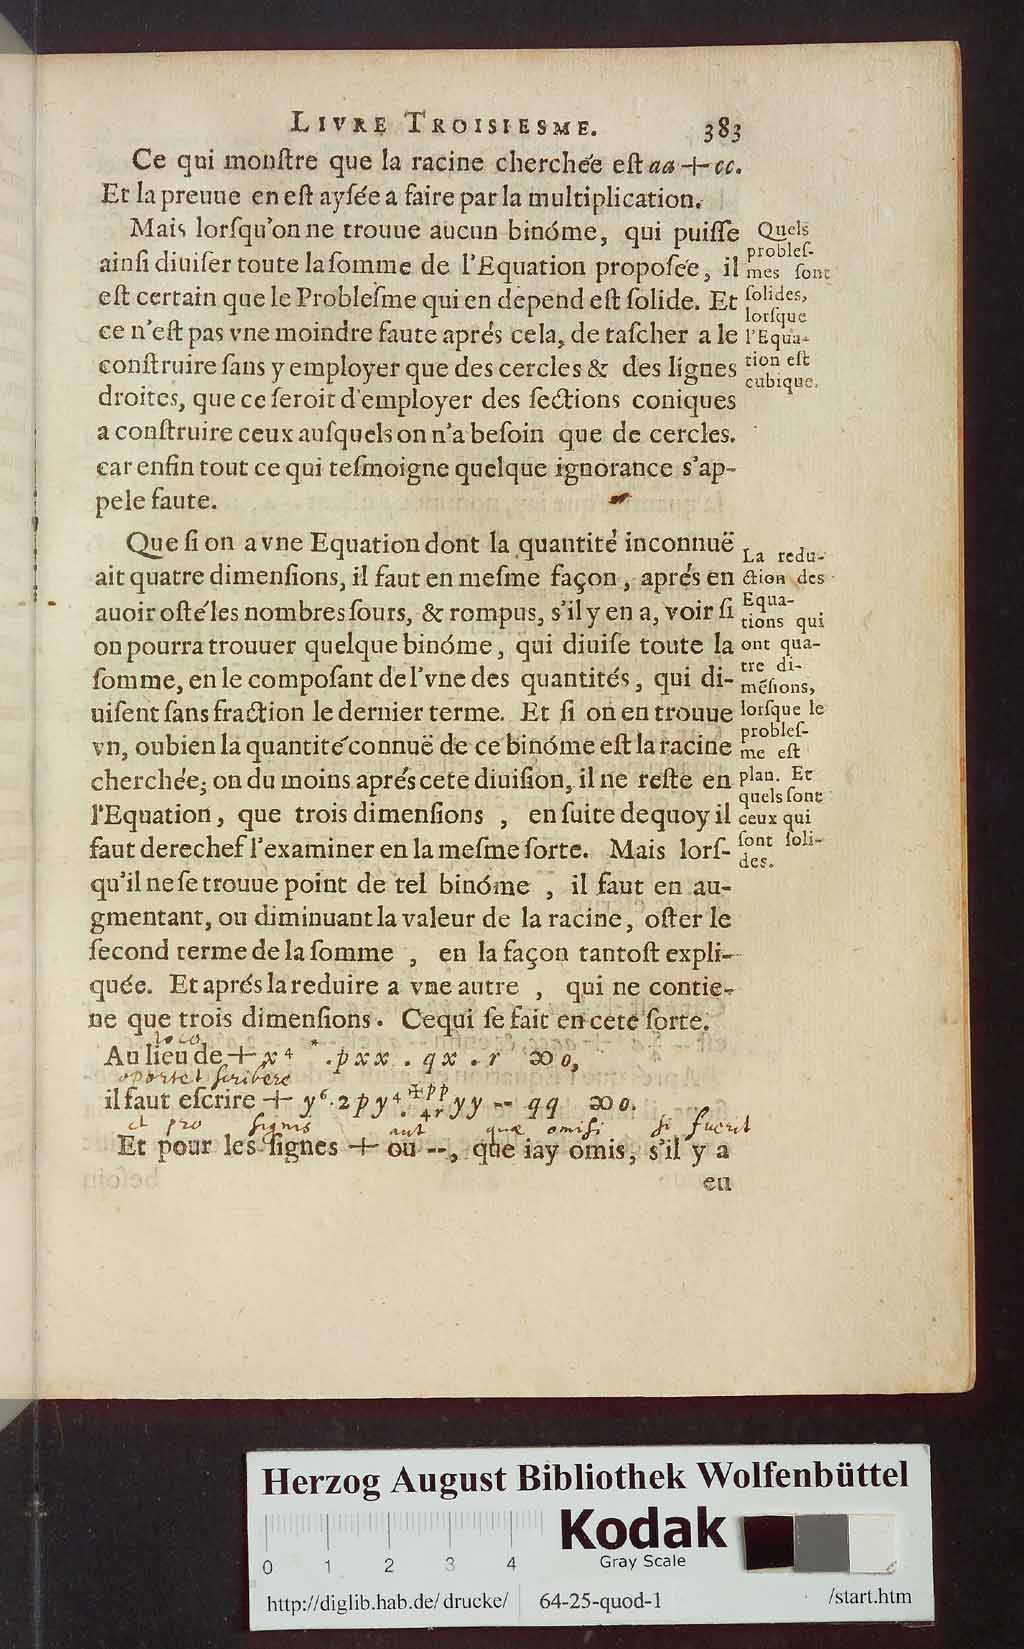 LIVRE TROISIESME. 383
Ce qui monſtre que la racine cherchée eſt aa + cc.
Et la preuue en eſt ayſée a faire par la multiplication.
Mais lorſqu'on ne trouue aucun binóme, qui puiſſe
ainſi diuiſer toute la ſomme de l'Equation propoſée, il
eſt certain que le Probleſme qui en depend eſt ſolide. Et
ce n'eſt pas vne moindre faute aprés cela, de taſcher a le
conſtruire ſans y employer que des cercles & des lignes
droites, que ce ſeroit d'employer des ſections coniques
a conſtruire ceux auſquels on n'a beſoin que de cercles.
car enfin tout ce qui teſmoigne quelque ignorance s'ap-
pele faute.
Quels
probleſ-
mes ſont
ſolides,
lorſque
l'Equa-
tion eſt
cubique.
Que ſi on a vne Equation dont la quantité inconnuë
ait quatre dimenſions, il faut en meſme façon, aprés en
auoir oſté les nombres ſours, & rompus, s'il y en a, voir ſi
on pourra trouuer quelque binóme, qui diuiſe toute la
ſomme, en le compoſant de l'vne des quantités, qui di-
uiſent ſans fraction le dernier terme. Et ſi on en trouue
vn, oubien la quantité connuë de ce binóme eſt la racine
cherchée; on du moins aprés cete diuiſion, il ne reſte en
l'Equation, que trois dimenſions , en ſuite dequoy il
faut derechef l'examiner en la meſme ſorte. Mais lorſ-
qu'il ne ſe trouue point de tel binóme , il faut en au-
gmentant, ou diminuant la valeur de la racine, oſter le
ſecond terme de la ſomme , en la façon tantoſt expli-
quée. Et aprés la reduire a vne autre , qui ne contie-
ne que trois dimenſions. Cequi ſe fait en cete ſorte.
La redu-
ction des
Equa-
tions qui
ont qua-
tre di-
mẽſions,
lorſque le
probleſ-
me eſt
plan. Et
quels ſont
ceux qui
ſont ſoli-
des.
loco
Au lieu de + x⁴ * . p x x . q x . r ∞ 0,
oportet ſcribere
il faut eſcrire + y⁶ . 2 p y⁴ + p p . 4 r y y -- q q ∞ 0.
et pro ſignis aut quæ omiſi ſi fuerit
Et pour les ſignes + ou --, que iay omis, s'il y a
eu
Herzog August Bibliothek Wolfenbüttel
Kodak
Gray Scale
0 1 2 3 4
http://diglib.hab.de/drucke/ 64-25-quod-1 /start.htm